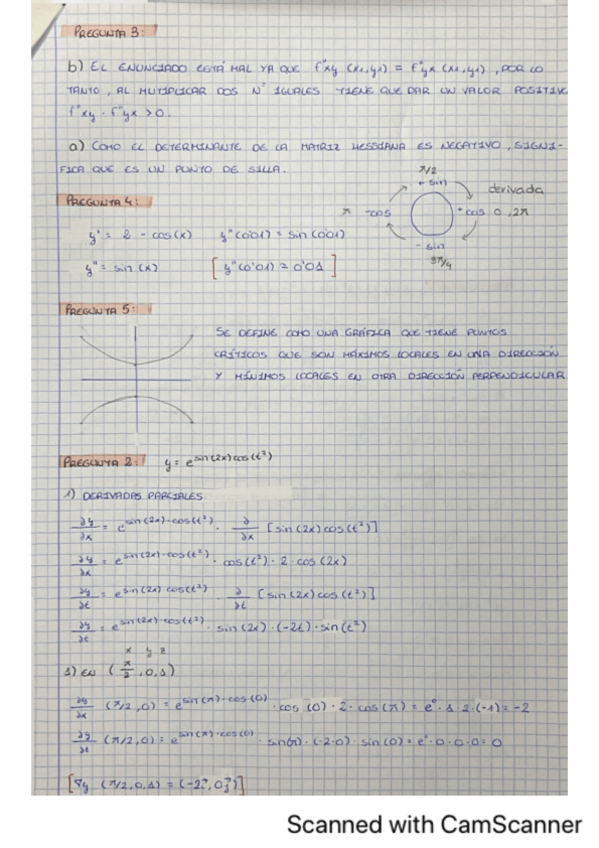 PREGUNTA 3:
b) EL ENUNCIADO ESTÁ MAL YA QUE f''xy (x1,y1) = f''yx (x1,y1), POR LO
TANTO, AL MUTIPLICAR DOS Nº IGUALES TIENE QUE DAR UN VALOR POSITIVO
f''xy · f''yx > 0.
a) COMO EL DETERMINANTE DE LA MATRIZ HESSIANA ES NEGATIVO, SIGNI-
FICA QUE ES UN PUNTO DE SILLA.
PREGUNTA 4:
y' = 2 - cos(x) y''(0'01) = sin(0'01)
y'' = sin(x) [y''(0'01) ≈ 0'01]
π/2
+ sin
derivada
π -cos +cos 0, 2π
- sin
3π/4
PREGUNTA 5:
SE DEFINE COMO UNA GRÁFICA QUE TIENE PUNTOS
CRÍTICOS QUE SON MÁXIMOS LOCALES EN UNA DIRECCIÓN
Y MÍNIMOS LOCALES EN OTRA DIRECCIÓN PERPENDICULAR
PREGUNTA 2: y = e^sin(2x)cos(t²)
1) DERIVADAS PARCIALES
∂y/∂x = e^sin(2x)·cos(t²) · ∂/∂x [sin(2x)cos(t²)]
∂y/∂x = e^sin(2x)·cos(t²) · cos(t²) · 2 · cos(2x)
∂y/∂t = e^sin(2x)·cos(t²) · ∂/∂t [sin(2x)cos(t²)]
∂y/∂t = e^sin(2x)·cos(t²) · sin(2x) · (-2t) · sin(t²)
x y z
1) EN (π/2, 0, 1)
∂y/∂x (π/2, 0) = e^sin(π)·cos(0) · cos(0) · 2 · cos(π) = e⁰ · 1 · 2 · (-1) = -2
∂y/∂t (π/2, 0) = e^sin(π)·cos(0) · sin(π) · (-2·0) · sin(0) = e⁰ · 0 · 0 · 0 = 0
[∇y (π/2, 0, 1) = (-2i, 0j)]
Scanned with CamScanner